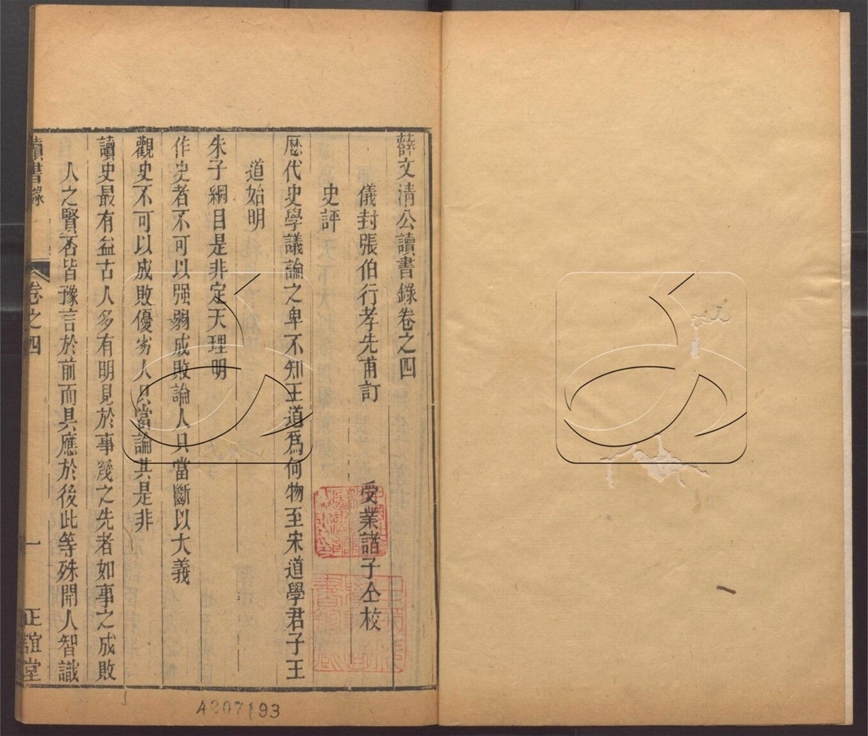 薛文清公讀書錄卷之四
儀封張伯行孝先甫訂
受業諸子仝校
史評
歷代史學議論之卑不知王道爲何物至宋道學君子王
道始明
朱子綱目是非定天理明
作史者不可以强弱成敗論人只當斷以大義
觀史不可以成敗優劣人只當論其是非
讀史最有益古人多有明見於事幾之先者如事之成敗
人之賢否皆豫言於前而具應於後此等殊開人智識
讀書錄
卷之四
一
正誼堂
A207193